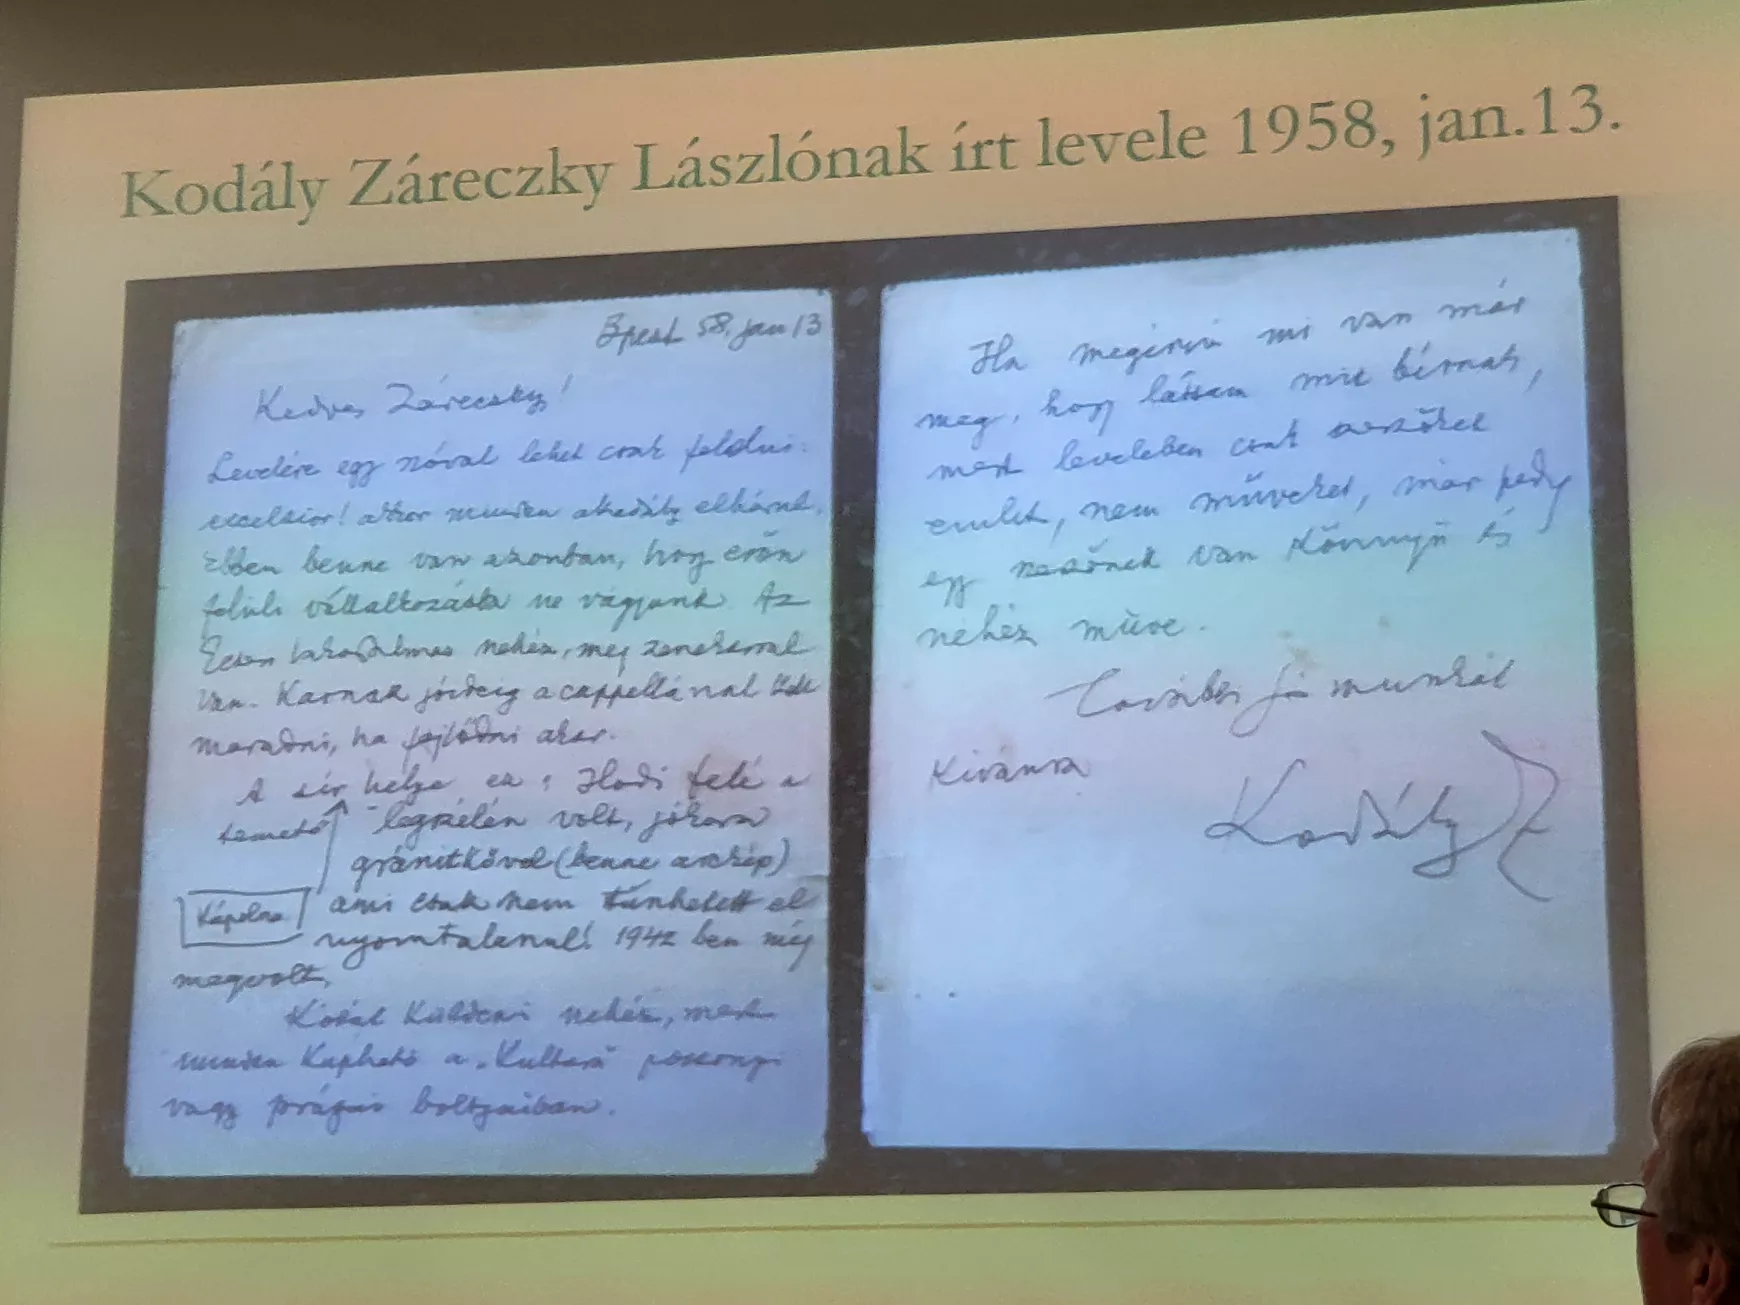 Kodály Záreczky Lászlónak írt levele 1958, jan.13.
Bpest 58, jan 13
Kedves Záreczky!
Levelére egy szóval lehet csak felelni:
excelsior! akkor minden akadály elhárul.
Ebben benne van azonban, hogy erőn
felüli vállalkozásba ne vágjunk. Az
nehéz, még zenekarral
van. Karnak jóideig a cappellánál kell
maradni, ha fejlődni akar.
A sír helye ez: Hodi felé a
temető legszélén volt, jókora
gránitkővel (benne arckép)
Kápolna ami csak nem tünhetett el
nyomtalanul! 1942 ben még
megvolt.
Kótát küldeni nehéz, mert
minden kapható a "Kultura" pozsonyi
vagy prágai boltjaiban.
Ha megírná mi van már
meg, hogy lássam mit bírnak,
mert levelében csak szerzőket
emlit, nem műveket, már pedig
egy szerzőnek van könnyű és
nehéz műve.
További jó munkát
kívánva
Kodály Z